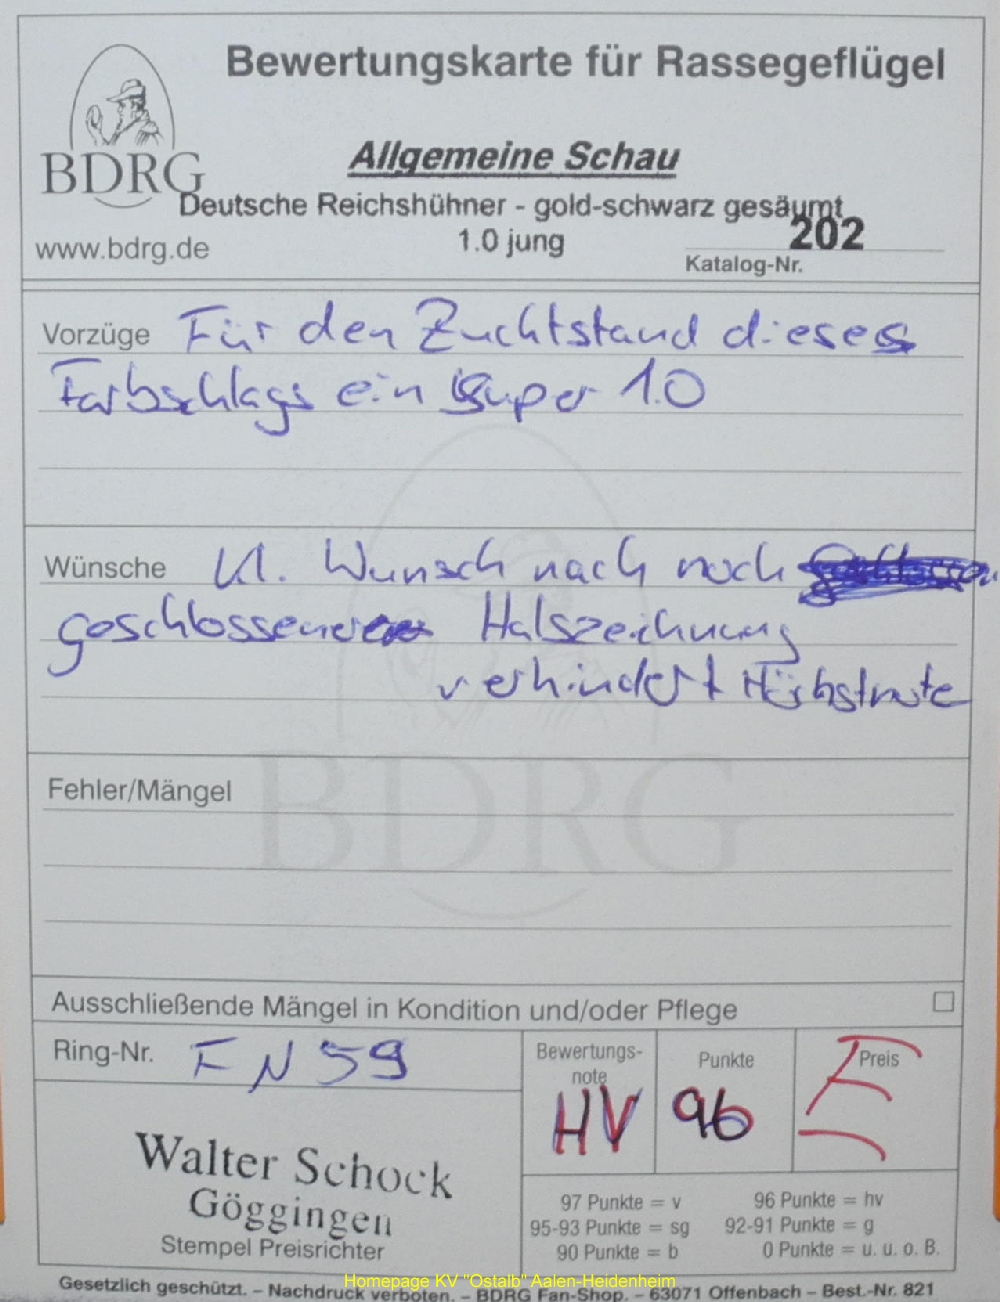 Bewertungskarte für Rassegeflügel
BDRG
Allgemeine Schau
Deutsche Reichshühner - gold-schwarz gesäumt
www.bdrg.de
1.0 jung
202
Katalog-Nr.
Vorzüge Für den Zuchtstand dieses
Farbschlags ein Super 1.0
Wünsche Kl. Wunsch nach noch
geschlossener Halszeichnung
verhindert Höchstnote
BDRG
Fehler/Mängel
Ausschließende Mängel in Kondition und/oder Pflege
Ring-Nr. FN 59
Bewertungs-
note
HV
Punkte
96
Preis
E
Walter Schock
Göggingen
Stempel Preisrichter
97 Punkte = v 96 Punkte = hv
95-93 Punkte = sg 92-91 Punkte = g
90 Punkte = b 0 Punkte = u. u. o. B.
Gesetzlich geschützt. – Nachdruck verboten. – BDRG Fan-Shop. – 63071 Offenbach – Best.-Nr. 821
Homepage KV "Ostalb" Aalen-Heidenheim